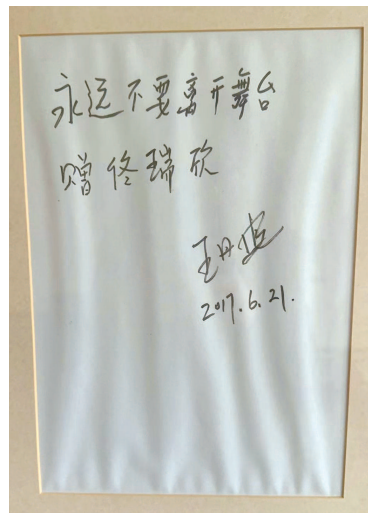 永远不要离开舞台
赠佟瑞欣
王丹凤
2017.6.21.